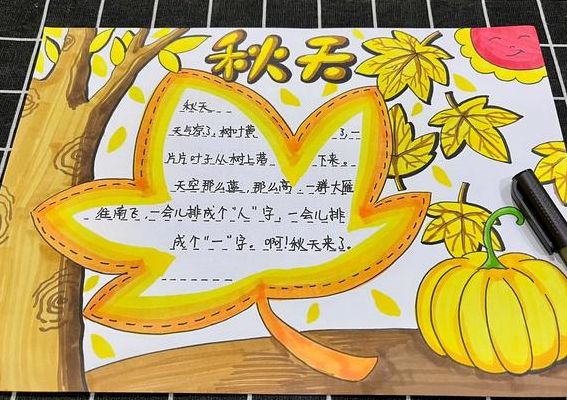 秋天
秋天
天气凉了，树叶黄了，一
片片叶子从树上落下来。
天空那么蓝，那么高，一群大雁
往南飞，一会儿排成个“人”字，一会儿排
成个“一”字。啊！秋天来了。